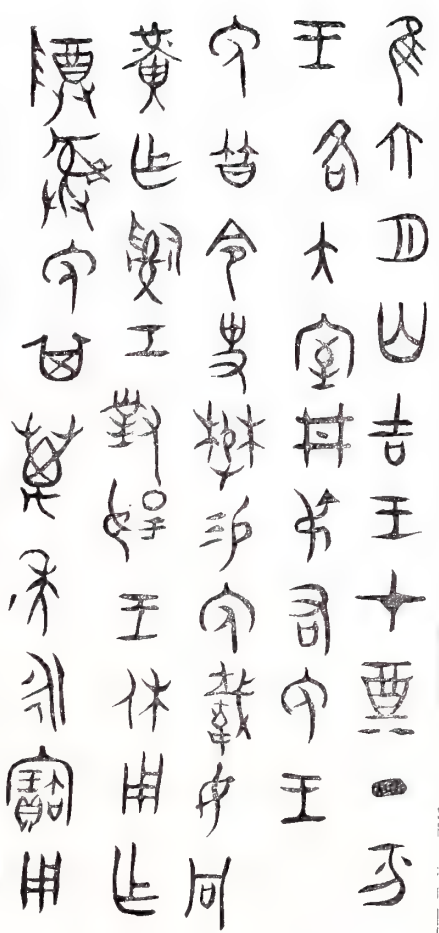 隹六月初吉王才奠丁亥
王各大室井弔右免王
免曆令史懋易免載巿冋
黃乍𤔲工對揚王休用乍
尊彝免其萬年永寶用